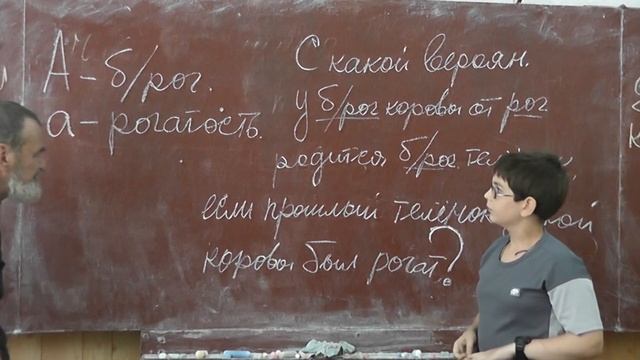 А – б/рог.
а – рогатость.
С какой вероян.
у б/рог коровы от рог
родится б/рог.
если прошлый телёнок
коровы был рогат?